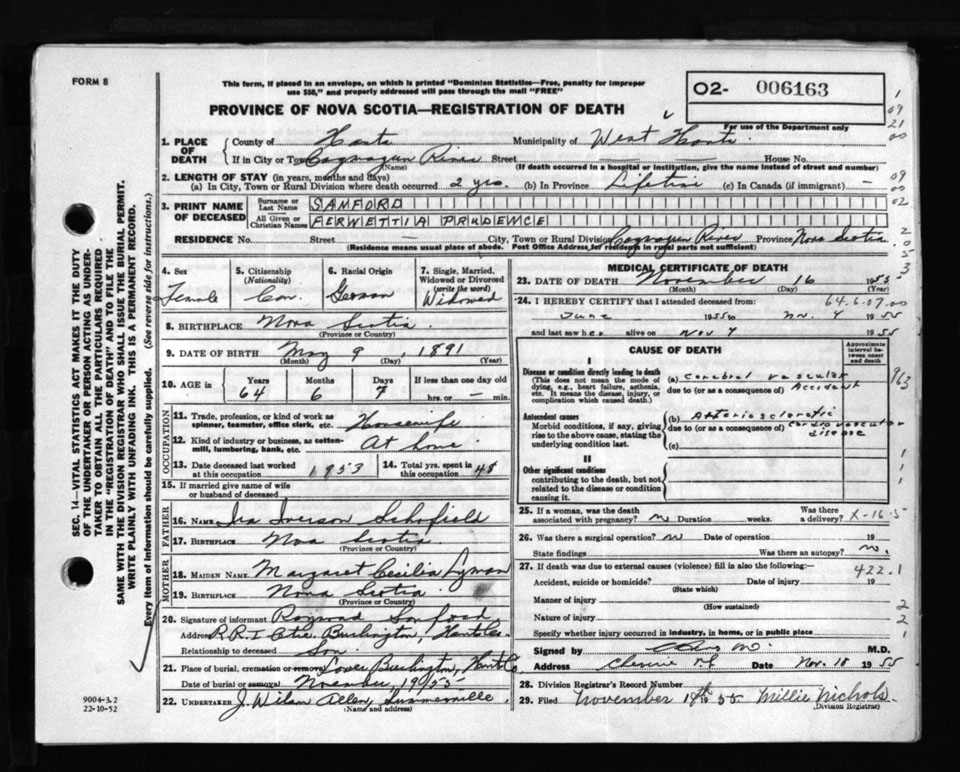 FORM 8
This form, if placed in an envelope, on which is printed "Dominion Statistics—Free, penalty for improper
use $50," and properly addressed will pass through the mail "FREE"
O2- 006163
PROVINCE OF NOVA SCOTIA—REGISTRATION OF DEATH
For use of the Department only
1. PLACE OF DEATH
County of Hants Municipality of West Hants
If in City or Town River Street House No.
(Name) (If death occurred in a hospital or institution, give the name instead of street and number)
2. LENGTH OF STAY (in years, months and days)
(a) In City, Town or Rural Division where death occurred 2 yrs. (b) In Province Lifetime (c) In Canada (if immigrant) —
3. PRINT NAME OF DECEASED
Surname or Last Name SANFORD
All Given or Christian Names FERWETTIA PRUDENCE
RESIDENCE No. Street — City, Town or Rural Division River Province Nova Scotia
(Residence means usual place of abode. Post Office Address for residents in rural parts not sufficient)
4. Sex Female
5. Citizenship (Nationality) Can.
6. Racial Origin German
7. Single, Married, Widowed or Divorced (write the word) Widowed
8. BIRTHPLACE Nova Scotia
(Province or Country)
9. DATE OF BIRTH May 9 1891
(Month) (Day) (Year)
10. AGE in Years 64 Months 6 Days 7 If less than one day old hrs. or — min.
OCCUPATION
11. Trade, profession, or kind of work as spinner, teamster, office clerk, etc. Housewife
12. Kind of industry or business, as cotton-mill, lumbering, bank, etc. At home.
13. Date deceased last worked at this occupation 1953
14. Total yrs. spent in this occupation 45
15. If married give name of wife or husband of deceased
FATHER
16. NAME Ira Iverson Schofield
17. BIRTHPLACE Nova Scotia
(Province or Country)
MOTHER
18. MAIDEN NAME Margaret Cecilia Lyman
19. BIRTHPLACE Nova Scotia
(Province or Country)
20. Signature of informant Sanford
Address R.R.1 Burlington, Hants Co.
Relationship to deceased Son.
21. Place of burial, cremation or removal Lower Burlington, Hants Co
Date of burial or removal November, 1955
22. UNDERTAKER J. Wilson Allen, Summerville
(Name and address)
MEDICAL CERTIFICATE OF DEATH
23. DATE OF DEATH November 16
(Month) (Day) (Year)
24. I HEREBY CERTIFY that I attended deceased from: 64.6.07.00
June 1955 to Nov. 9 1955
and last saw her alive on Nov 9 1955
CAUSE OF DEATH
Approximate interval between onset and death
I
Disease or condition directly leading to death
(This does not mean the mode of dying, e.g., heart failure, asthenia, etc. It means the disease, injury, or complication which caused death.)
(a) cerebral vascular
due to (or as a consequence of) Accident
Antecedent causes
Morbid conditions, if any, giving rise to the above cause, stating the underlying condition last.
(b) Arteriosclerotic
due to (or as a consequence of) cardiovascular disease
(c)
II
Other significant conditions
contributing to the death, but not related to the disease or condition causing it.
25. If a woman, was the death associated with pregnancy? no Duration weeks. Was there a delivery? X-16-5
26. Was there a surgical operation? no Date of operation 19
State findings Was there an autopsy? no.
27. If death was due to external causes (violence) fill in also the following:— 422.1
Accident, suicide or homicide? Date of injury 19
(State which)
Manner of injury
(How sustained)
Nature of injury
Specify whether injury occurred in industry, in home, or in public place
Signed by M.D.
Address Date Nov. 18 1955
28. Division Registrar's Record Number
29. Filed November 19th 1955 Millie Nichols
(Division Registrar)
SEC. 14—VITAL STATISTICS ACT MAKES IT THE DUTY
OF THE UNDERTAKER OR PERSON ACTING AS UNDER-
TAKER TO OBTAIN ALL THE PARTICULARS REQUIRED
IN THE "REGISTRATION OF DEATH" AND TO FILE THE
SAME WITH THE DIVISION REGISTRAR WHO SHALL ISSUE THE BURIAL PERMIT.
WRITE PLAINLY WITH UNFADING INK. THIS IS A PERMANENT RECORD.
Every item of information should be carefully supplied. (See reverse side for instructions.)
9004-3.2
22-10-52
1
09
21
00
09
00
02
2
0
5
3
963
1
1
1
2
2
1